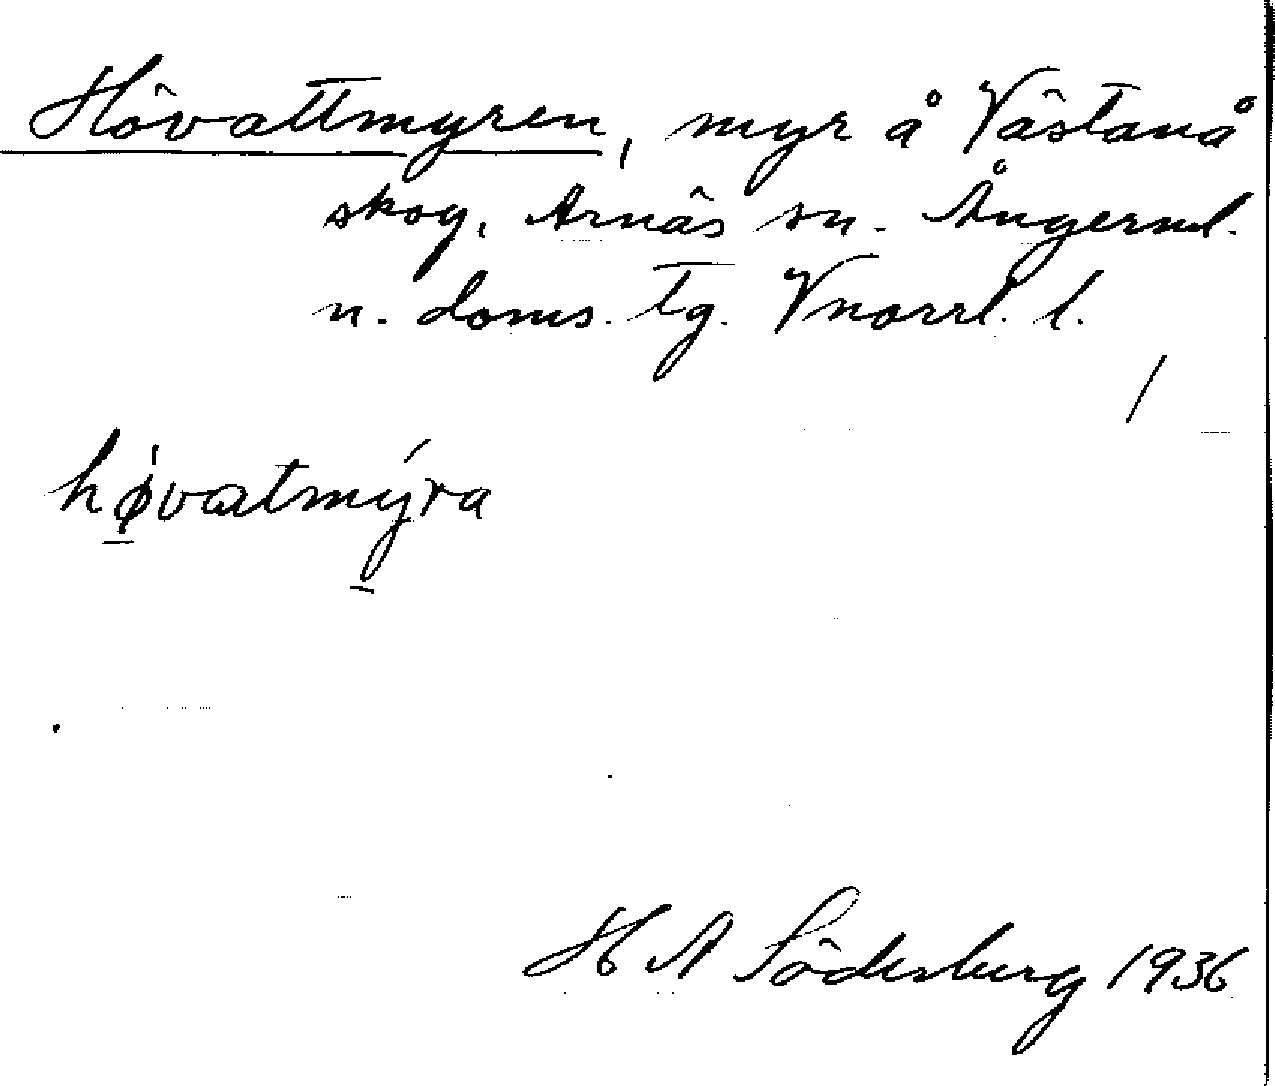 Hövattmyren, myr å Västanå
skog, Arnäs sn. Ångerml.
n. doms. tg. Vnorrl. l.
/
hø̱vatmý̱ra
H A Söderberg 1936